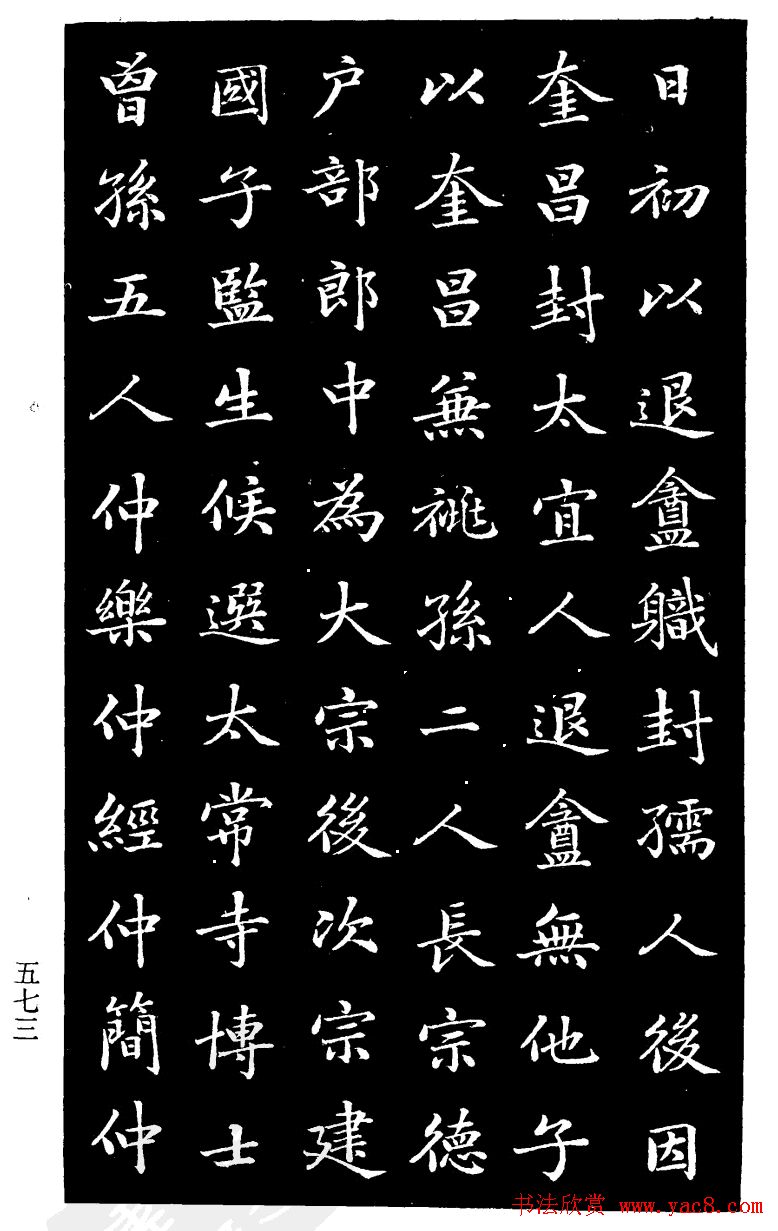 日初以退盦職封孺人後因
奎昌封太宜人退盦無他子
以奎昌兼祧孫二人長宗德
户部郎中為大宗後次宗建
國子監生候選太常寺博士
曾孫五人仲樂仲經仲簡仲
五七三
书法欣赏 www.yac8.com